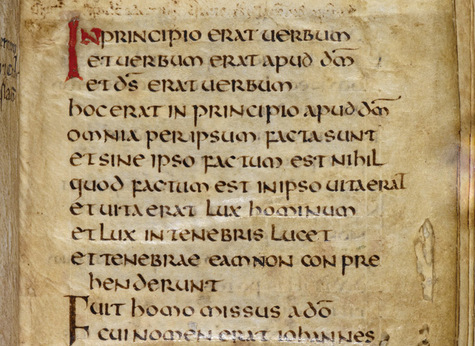 IN PRINCIPIO ERAT UERBUM
ET UERBUM ERAT APUD D̅M̅
ET D̅S̅ ERAT UERBUM
HOC ERAT IN PRINCIPIO APUD D̅M̅
OMNIA PER IPSUM FACTA SUNT
ET SINE IPSO FACTUM EST NIHIL
QUOD FACTUM EST IN IPSO UITA ERAT
ET UITA ERAT LUX HOMINUM
ET LUX IN TENEBRIS LUCET
ET TENEBRAE EAM NON CONPRE
HENDERUNT
FUIT HOMO MISSUS A D̅O̅
CUI NOMEN ERAT IOHANNES